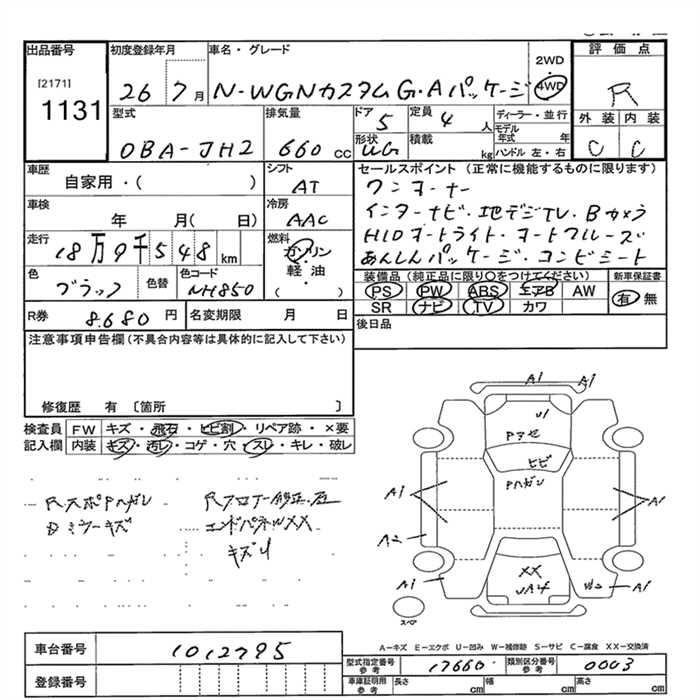 出品番号 初度登録年月 車名・グレード 2WD 評価点
[2171] 1131 26 7月 N-WGNカスタムG・Aパッケージ 4WD R
型式 排気量 ドア 5 定員 4人 ディーラー・並行 外装 内装
DBA-JH2 660cc 形状 UG 積載 kg モデル年式 年 ハンドル 左・右 C C
車歴 自家用・( ) シフト AT セールスポイント(正常に機能するものに限ります)
ワンオーナー
車検 年 月( 日) 冷房 AAC インターナビ・地デジTV・Bカメラ
走行 18万9千548km 燃料 ガソリン HIDオートライト・オートクルーズ
軽油 ( ) あんしんパッケージ・コンビシート
色 ブラック 色替 色コード NH850 装備品(純正品に限り○をつけてください) 新車保証書
PS PW ABS エアB AW 有 無
R券 8.680円 名変期限 月 日 SR ナビ TV カワ
注意事項申告欄(不具合内容等は具体的に記入して下さい) 後日品
修復歴 有 〔箇所 〕
検査員 FW キズ・飛石・ヒビ割・リペア跡・×要
記入欄 内装 キズ・汚レ・コゲ・穴・スレ・キレ・破レ
RスポPハガレ Rフロアー修正・歪
Dミラーキズ エンドパネルXX
キズU
A1 A1
U1
Pアセ
ヒビ
Pハガレ
A1 A1
A2
A1 XX A1
UA4
スペア
A–キズ E–エクボ U–凹み W–補修跡 S–サビ C–腐食 XX–交換済
車台番号 1012795 型式指定番号 参考 17660 類別区分番号 参考 0003
登録番号 車庫証明用 参考 長さ cm 幅 cm 高さ cm